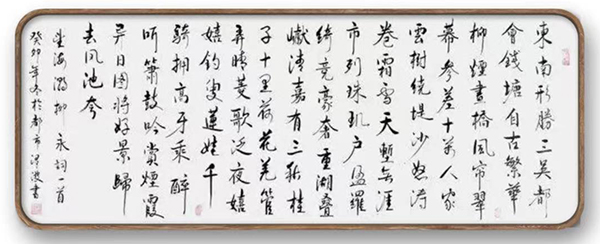 東南形勝三吳都
會錢塘自古繁華
柳煙畫橋風帘翠
幕參差十萬人家
雲樹繞堤沙怒濤
卷霜雪天塹無涯
市列珠璣户盈羅
綺竞豪奢重湖叠
巘清嘉有三秋桂
子十里荷花羌管
弄晴菱歌泛夜嬉
嬉釣叟蓮娃千
騎擁高牙乘醉
听簫鼓吟賞煙霞
異日图將好景歸
去凤池夸
望海潮柳永詞一首
癸卯年冬於都市書